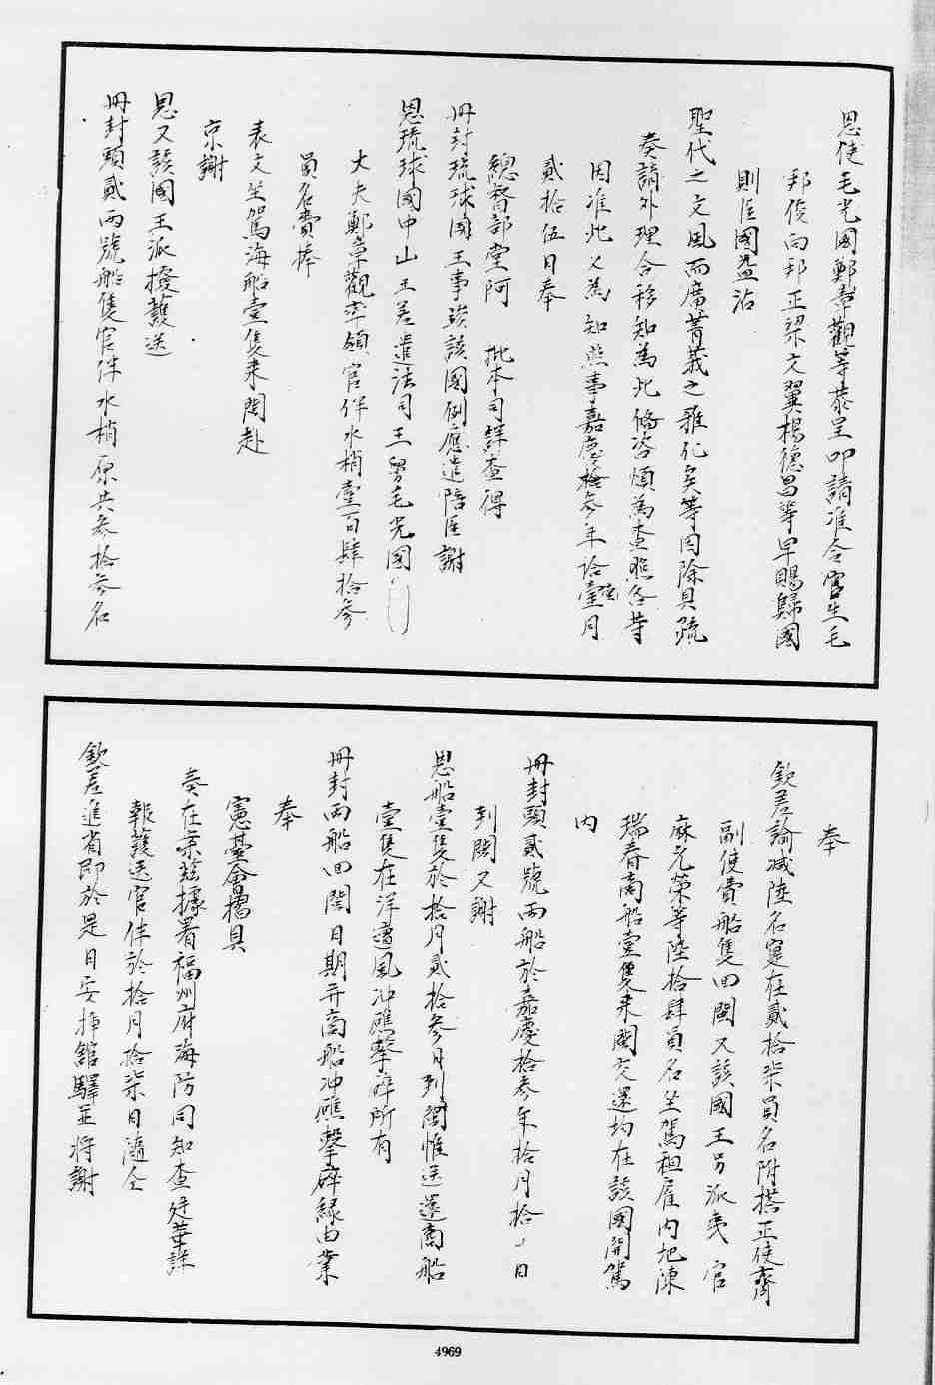 恩使毛光國鄭章觀等恭呈叩請准令官生毛
邦俊向邦正梁文翼楊德昌等早賜歸國
則臣國益沾
聖代之文風而廣菁莪之雅化矣等因除具疏
奏請外理合移知為此備咨煩為查照咨等
因准此又為知照事嘉慶拾參年拾壹月
貳拾伍日奉
總督部堂阿 批本司詳查得
冊封琉球國王事竣該國例應遣陪臣謝
恩琉球國中山王差遣法司王舅毛光國
大夫鄭章觀率領官伴水梢壹百肆拾參
員名賫捧
表文坐駕海船壹隻來閩赴
京謝
恩又該國王派撥護送
冊封頭貳兩號船隻官伴水梢原共參拾參名
奉
欽差諭減陸名寔在貳拾柒員名附搭正使齊
副使費船隻回閩又該國王另派夷官
麻光榮等陸拾肆員名坐駕租雇內地陳
瑞春商船壹隻來閩交還均在該國開駕
內
冊封頭貳號兩船於嘉慶拾參年拾月拾 日
到閩又謝
恩船壹隻於拾月貳拾參日到閩惟送還商船
壹隻在洋遭風沖礁擊碎所有
冊封兩船回閩日期并商船沖礁擊碎緣由業
奉
憲臺會摺具
奏在案茲據署福州府海防同知查廷華詳
報護送官伴於拾月拾柒日隨仝
欽差進省即於是日安插館驛並將謝
4969